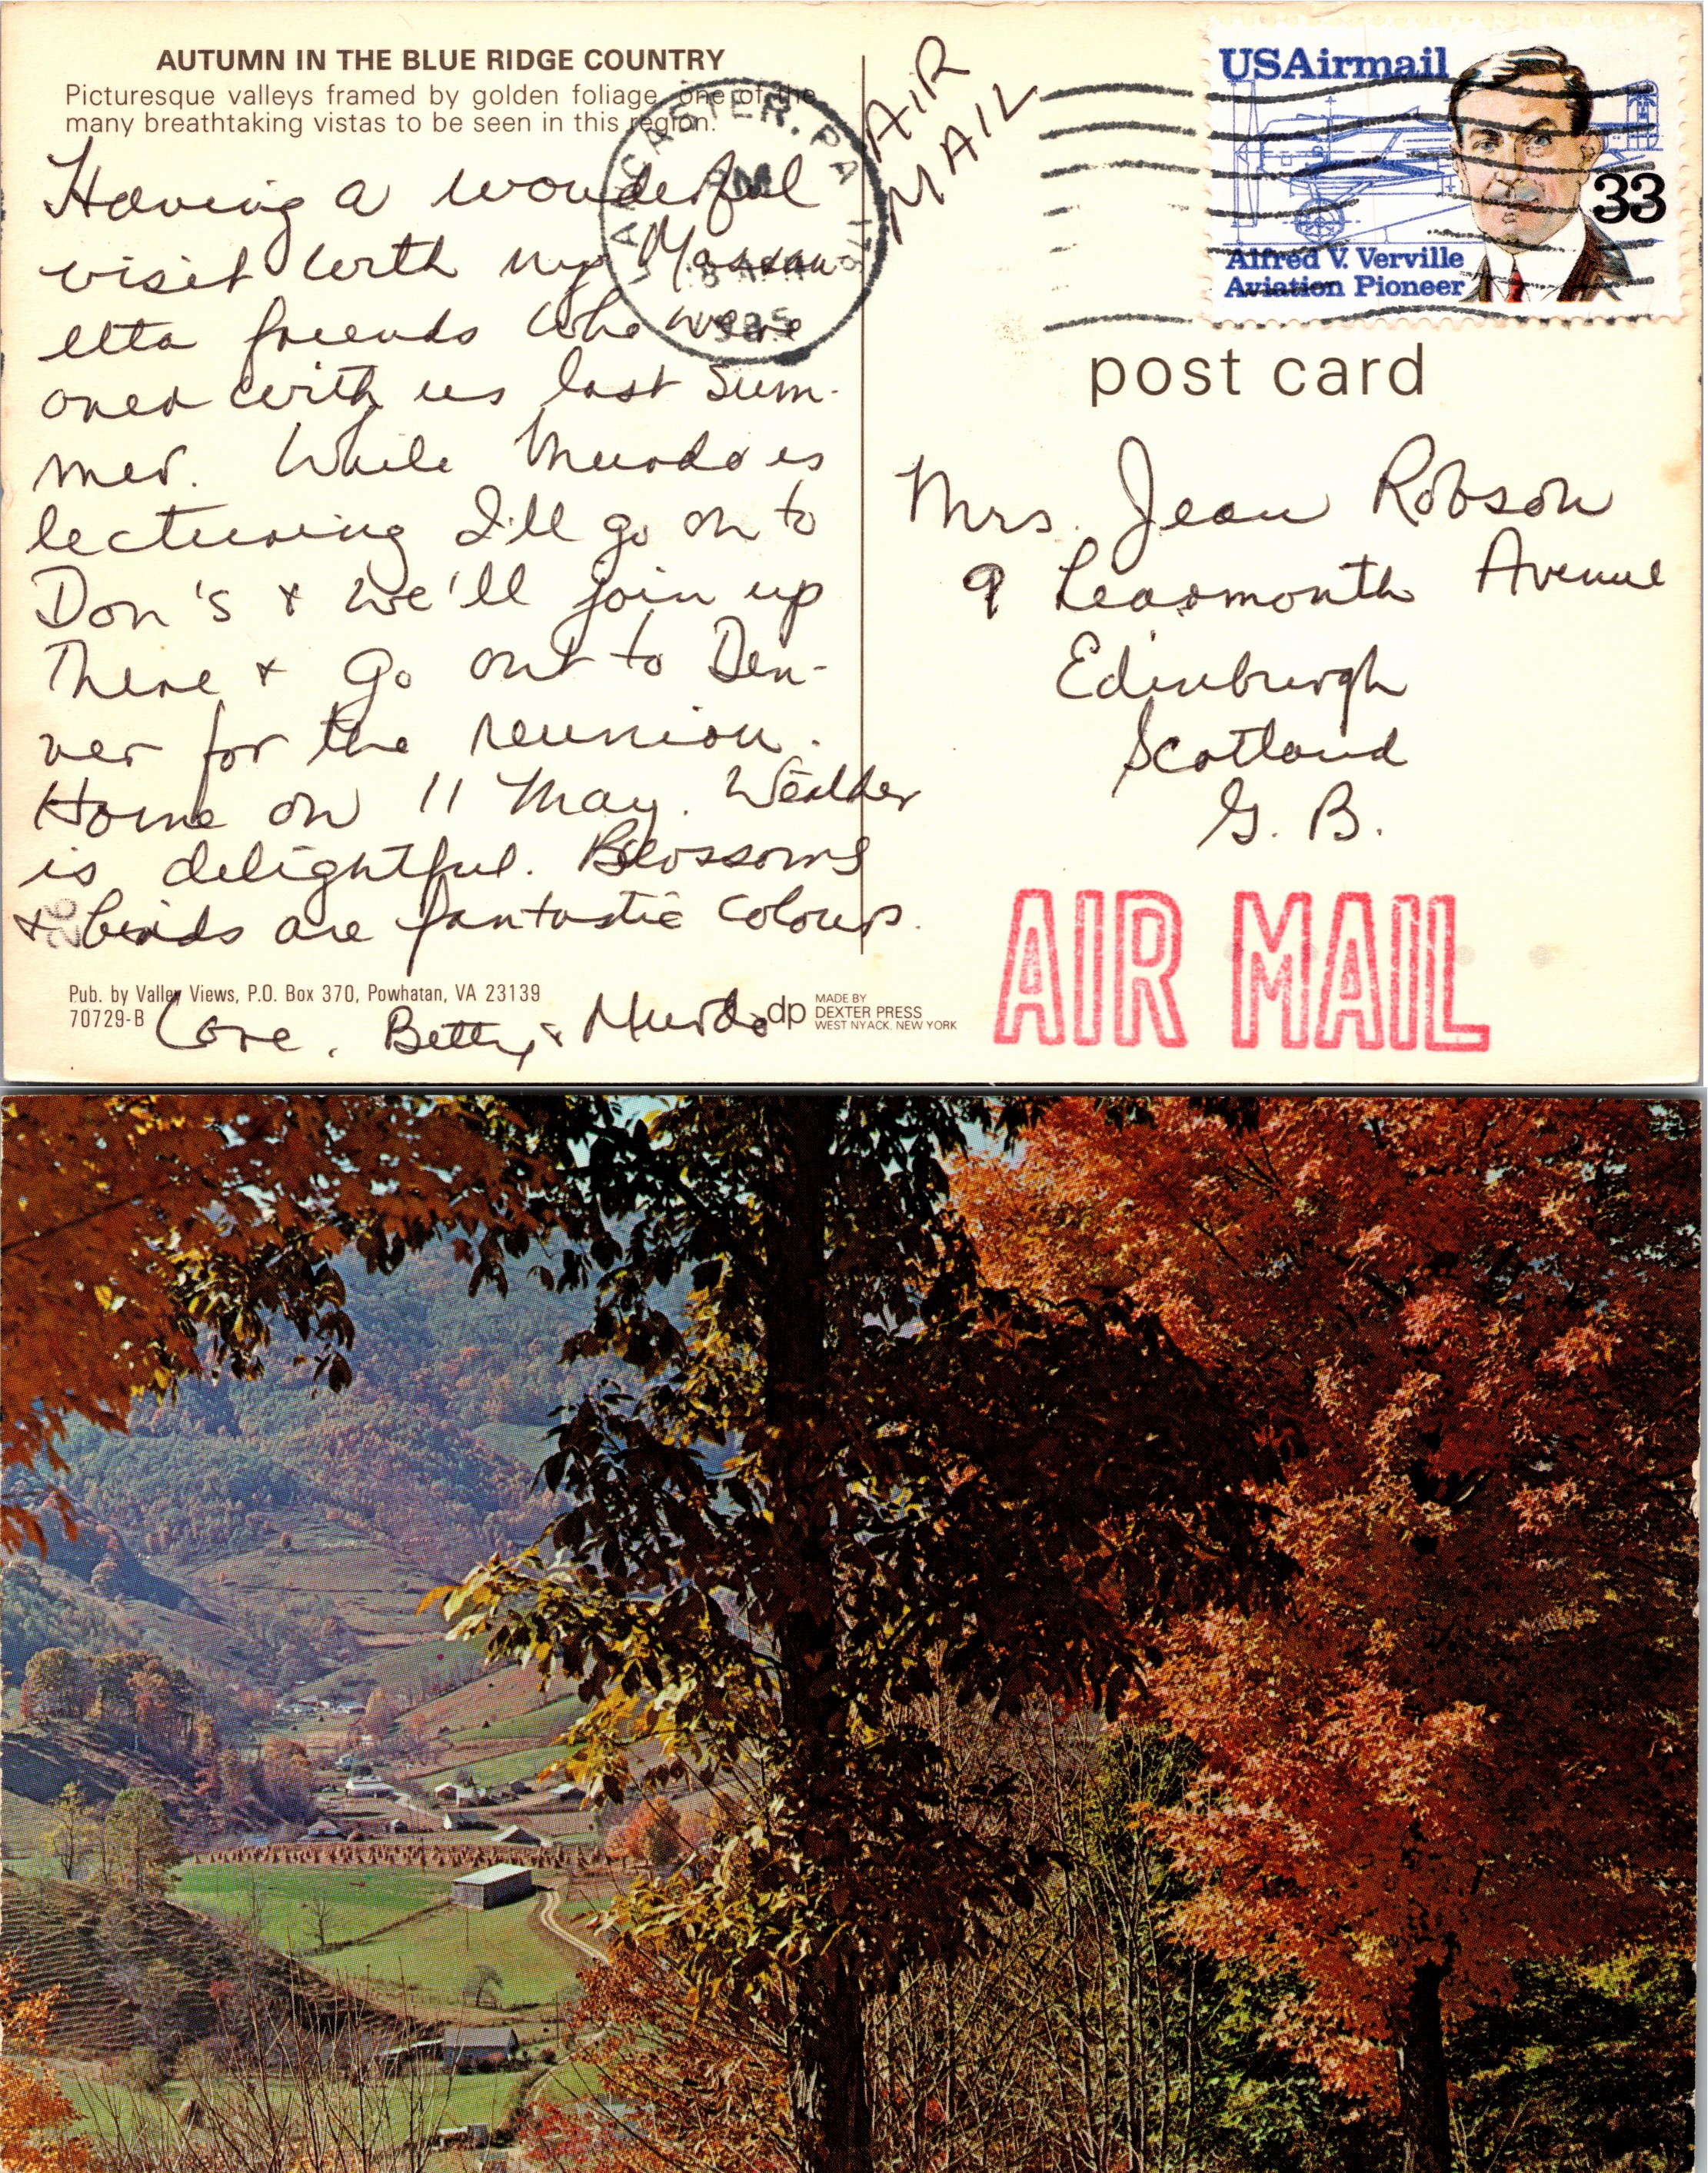 AUTUMN IN THE BLUE RIDGE COUNTRY
Picturesque valleys framed by golden foliage, one of the
many breathtaking vistas to be seen in this region.
Having a wonderful
visit with my Massan-
etta friends who were
over with us last sum-
mer. While Murdo is
lecturing I'll go on to
Don's & we'll join up
there & go out to Den-
ver for the reunion.
Home on 11 May. Weather
is delightful. Blossoms
& birds are fantastic colours.
Love, Betty & Murdo
Pub. by Valley Views, P.O. Box 370, Powhatan, VA 23139
70729-B
dp
MADE BY
DEXTER PRESS
WEST NYACK, NEW YORK
LANCASTER, PA 176
1985
AIR
MAIL
USAirmail
33
Alfred V. Verville
Aviation Pioneer
post card
Mrs. Jean Robson
9 Learmonth Avenue
Edinburgh
Scotland
G. B.
AIR MAIL